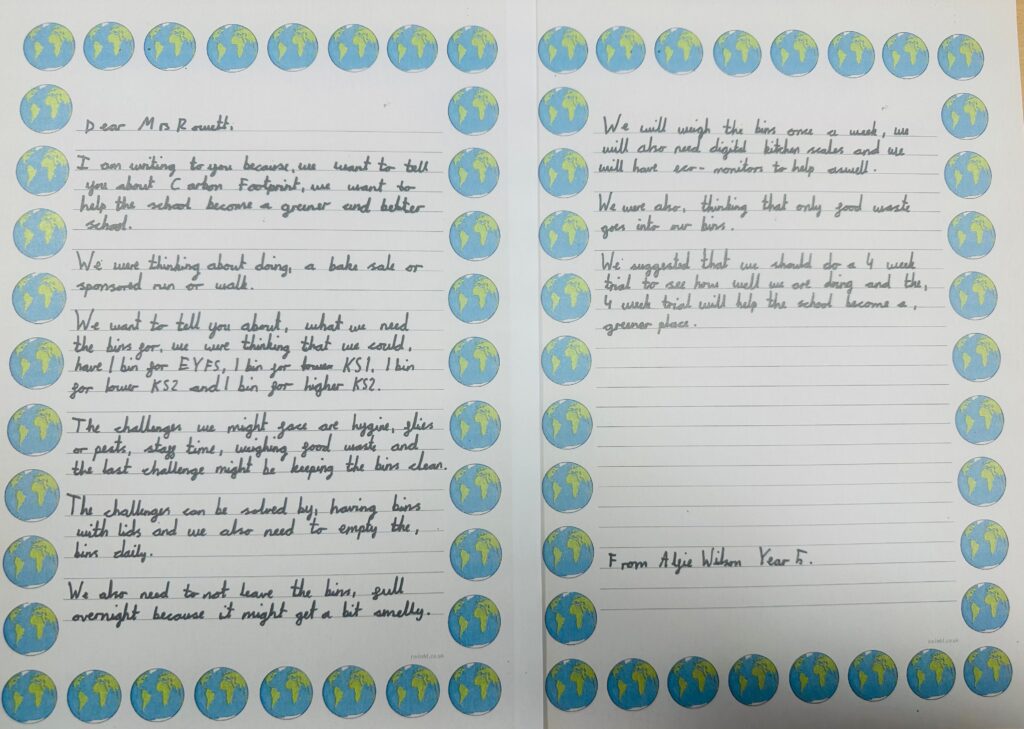 Dear Mrs Rowett,
I am writing to you because, we want to tell
you about Carbon Footprint, we want to
help the school become a greener and better
school.
We were thinking about doing, a bake sale or
sponsored run or walk.
We want to tell you about, what we need
the bins for, we were thinking that we could,
have 1 bin for EYFS, 1 bin for lower KS1, 1 bin
for lower KS2 and 1 bin for higher KS2.
The challenges we might face are hygine, flies
or pests, staff time, weighing food waste and
the last challenge might be keeping the bins clean.
The challenges can be solved by, having bins
with lids and we also need to empty the,
bins daily.
We also need to not leave the bins, full
overnight because it might get a bit smelly.
twinkl.co.uk
We will weigh the bins once a week, we
will also need digital kitchen scales and we
will have eco-monitors to help aswell.
We were also, thinking that only food waste
goes into our bins.
We suggested that we should do a 4 week
trial to see how well we are doing and the,
4 week trial will help the school become a,
greener place.
From Algie Wilson Year 5.
twinkl.co.uk